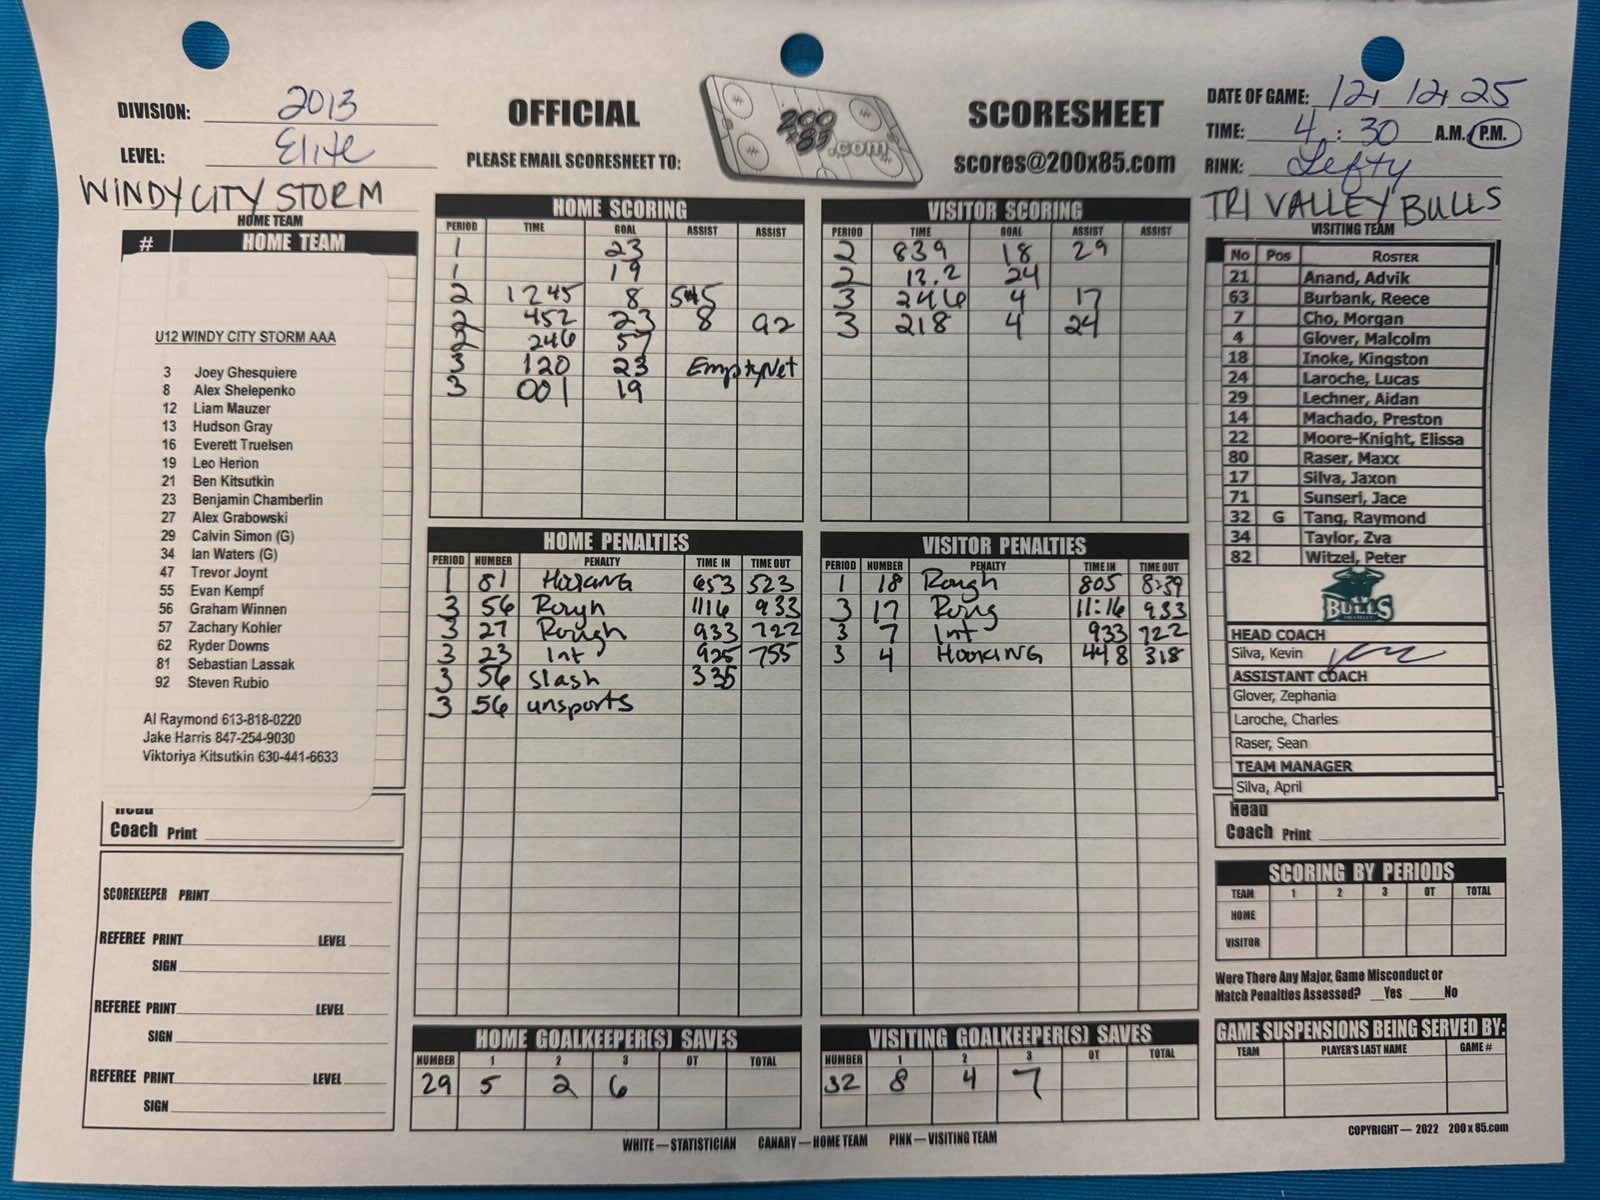 DIVISION: 2013
LEVEL: Elite
OFFICIAL
PLEASE EMAIL SCORESHEET TO:
200 x 85 .com
SCORESHEET
scores@200x85.com
DATE OF GAME: 12, 12, 25
TIME: 4 : 30 A.M. P.M.
RINK: Lefty
WINDY CITY STORM
HOME TEAM
# HOME TEAM
U12 WINDY CITY STORM AAA
3 Joey Ghesquiere
8 Alex Shelepenko
12 Liam Mauzer
13 Hudson Gray
16 Everett Truelsen
19 Leo Herion
21 Ben Kitsutkin
23 Benjamin Chamberlin
27 Alex Grabowski
29 Calvin Simon (G)
34 Ian Waters (G)
47 Trevor Joynt
55 Evan Kempf
56 Graham Winnen
57 Zachary Kohler
62 Ryder Downs
81 Sebastian Lassak
92 Steven Rubio
Al Raymond 613-818-0220
Jake Harris 847-254-9030
Viktoriya Kitsutkin 630-441-6633
Head
Coach Print
SCOREKEEPER PRINT
REFEREE PRINT LEVEL
SIGN
REFEREE PRINT LEVEL
SIGN
REFEREE PRINT LEVEL
SIGN
HOME SCORING
PERIOD TIME GOAL ASSIST ASSIST
1 23
1 19
2 1245 8
2 452 23 8 92
2 246 57
3 120 23 Empty Net
3 001 19
VISITOR SCORING
PERIOD TIME GOAL ASSIST ASSIST
2 839 18 29
2 13.2 24
3 246 4 17
3 218 4 24
HOME PENALTIES
PERIOD NUMBER PENALTY TIME IN TIME OUT
1 81 HOOKING 653 523
3 56 Rough 1116 933
3 27 Rough 933 722
3 23 Int 925 755
3 56 slash 335
3 56 unsports
VISITOR PENALTIES
PERIOD NUMBER PENALTY TIME IN TIME OUT
1 18 Rough 805
3 17 11:16 933
3 7 Int 933 722
3 4 HOOKING 448 318
HOME GOALKEEPER(S) SAVES
NUMBER 1 2 3 OT TOTAL
29 5 2 6
VISITING GOALKEEPER(S) SAVES
NUMBER 1 2 3 OT TOTAL
32 8 4 7
WHITE — STATISTICIAN CANARY — HOME TEAM PINK — VISITING TEAM
TRI VALLEY BULLS
VISITING TEAM
No Pos ROSTER
21 Anand, Advik
63 Burbank, Reece
7 Cho, Morgan
4 Glover, Malcolm
18 Inoke, Kingston
24 Laroche, Lucas
29 Lechner, Aidan
14 Machado, Preston
22 Moore-Knight, Elissa
80 Raser, Maxx
17 Silva, Jaxon
71 Sunseri, Jace
32 G Tang, Raymond
34 Taylor, Zva
82 Witzel, Peter
BULLS
HEAD COACH
Silva, Kevin
ASSISTANT COACH
Glover, Zephania
Laroche, Charles
Raser, Sean
TEAM MANAGER
Silva, April
Head
Coach Print
SCORING BY PERIODS
TEAM 1 2 3 OT TOTAL
HOME
VISITOR
Were There Any Major, Game Misconduct or
Match Penalties Assessed? __Yes ____No
GAME SUSPENSIONS BEING SERVED BY:
TEAM PLAYER'S LAST NAME GAME #
COPYRIGHT — 2022 200 x 85.com